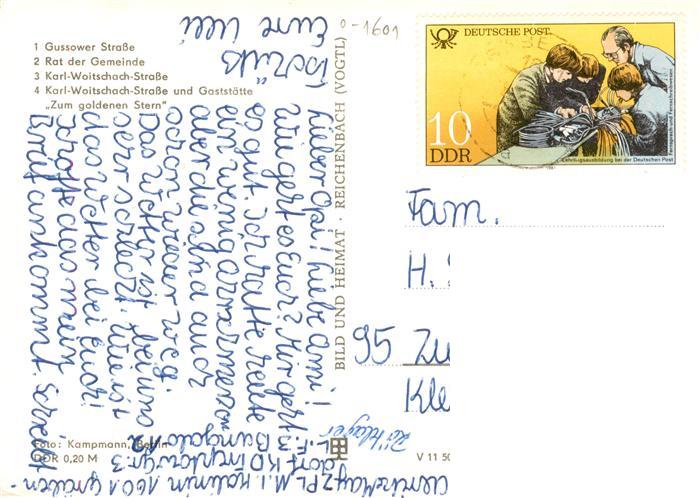 1 Gussower Straße
2 Rat der Gemeinde
3 Karl-Woitschach-Straße
4 Karl-Woitschach-Straße und Gaststätte
„Zum goldenen Stern"
Foto: Kampmann, Berlin
DDR 0,20 M
BILD UND HEIMAT · REICHENBACH (VOGTL)
V 11 50
0-1601
DEUTSCHE POST
10
DDR
Lehrlingsausbildung bei der Deutschen Post
Fam.
H.
95 Zw
Kle
Lieber Opi! Liebe Omi!
Wie geht es Euch? Mir geht
es gut. Ich hatte heute
ein wenig
aber die sind auch
schon wieder weg.
Das Wetter ist bei uns
sehr schlecht. Wie ist
das Wetter bei Euch?
Ich hoffe das mein
Brief ankommt.
Tschüß
Eure Ulli